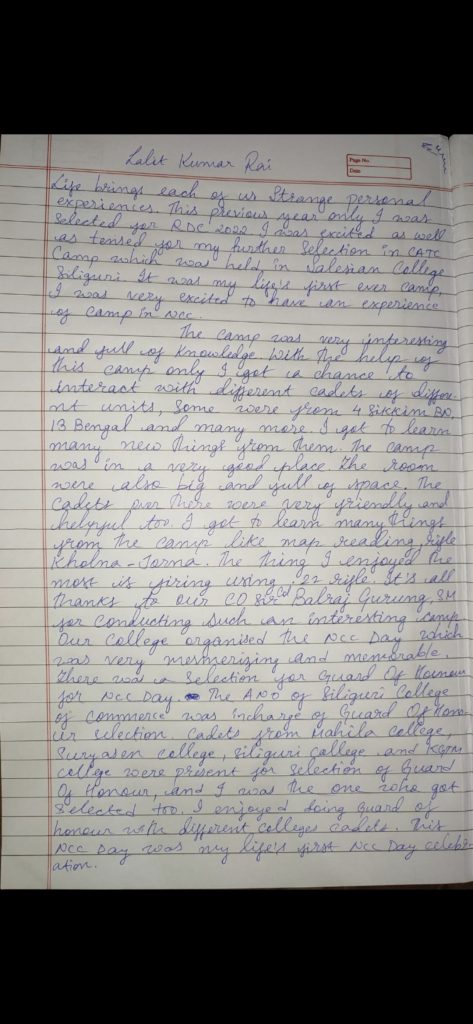 Lalit Kumar Rai
Page No.
Date
Life brings each of us Strange personal
experiences. This previous year only I was
selected for RDC 2022 I was excited as well
as tensed for my further Selection in CATC
Camp which was held in Salesian College
Siliguri. It was my life's first ever camp,
I was very excited to have an experience
of camp in NCC.
The camp was very interesting
and full of Knowledge with the help of
this camp only I got a chance to
interact with different cadets of differe-
nt units, Some were from 4 Sikkim BN,
13 Bengal and many more. I got to learn
many new things from them. The camp
was in a very good place the room
were also big and full of space, The
Cadets over there were very friendly and
helpful too. I got to learn many things
from the camp like map reading, rifle
Kholna - Jorna. The thing I enjoyed the
most is firing using .22 rifle. It's all
thanks to our CO Sir Balraj Gurung, SM
for conducting such an interesting camp.
Our College organised the NCC Day which
was very mesmerizing and memorable.
There was a Selection for Guard Of Honour
for NCC Day. The ANO of Siliguri College
of Commerce was incharge of Guard Of Hono-
ur selection. Cadets from Mahila College,
Suryasen college, Siliguri college and
college were present for selection of Guard
Of Honour, and I was the one who got
selected too. I enjoyed doing guard of
honour with different colleges cadets. This
NCC Day was my life's first NCC Day celebr-
ation.